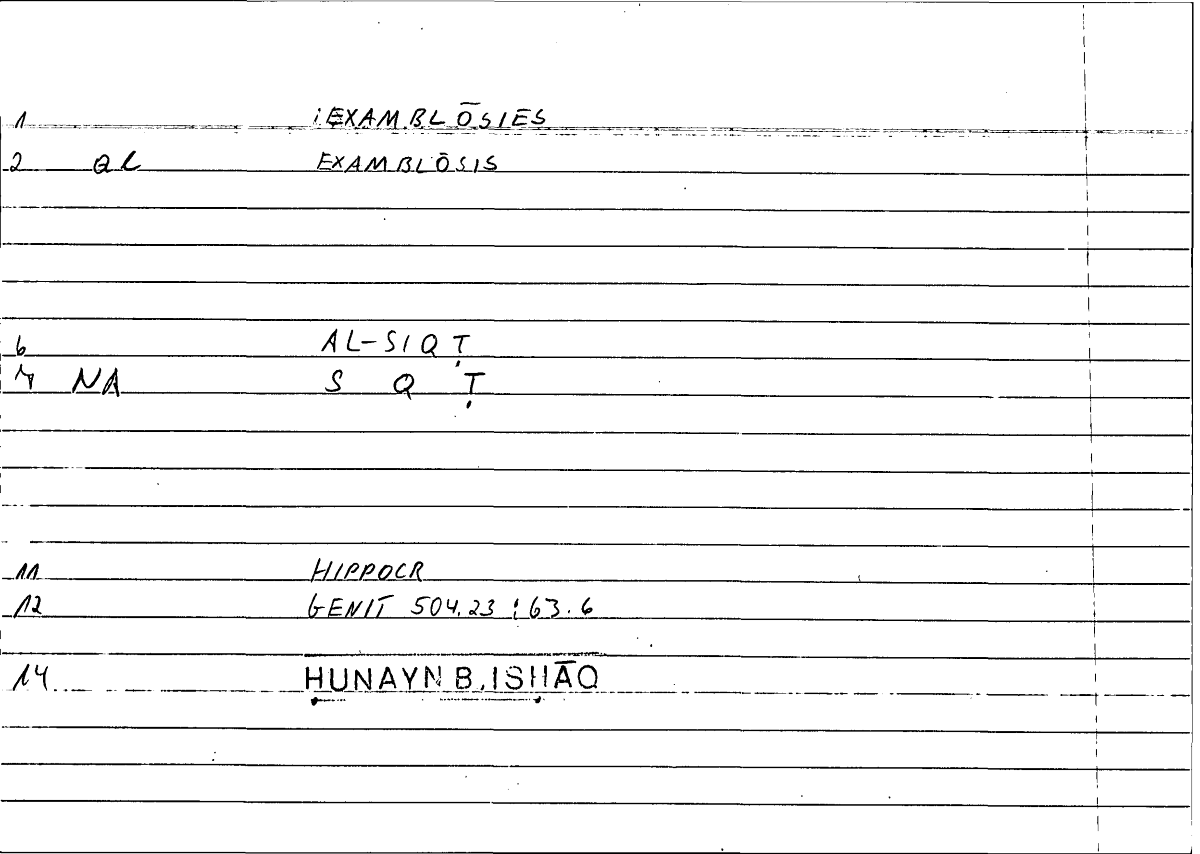 1 : EXAMBLŌSIES
2 QL EXAMBLŌSIS
6 AL-SIQṬ
7 NA S Q Ṭ
11 HIPPOCR
12 GENIT 504.23 : 63.6
14 ḤUNAYN B. ISḤĀQ